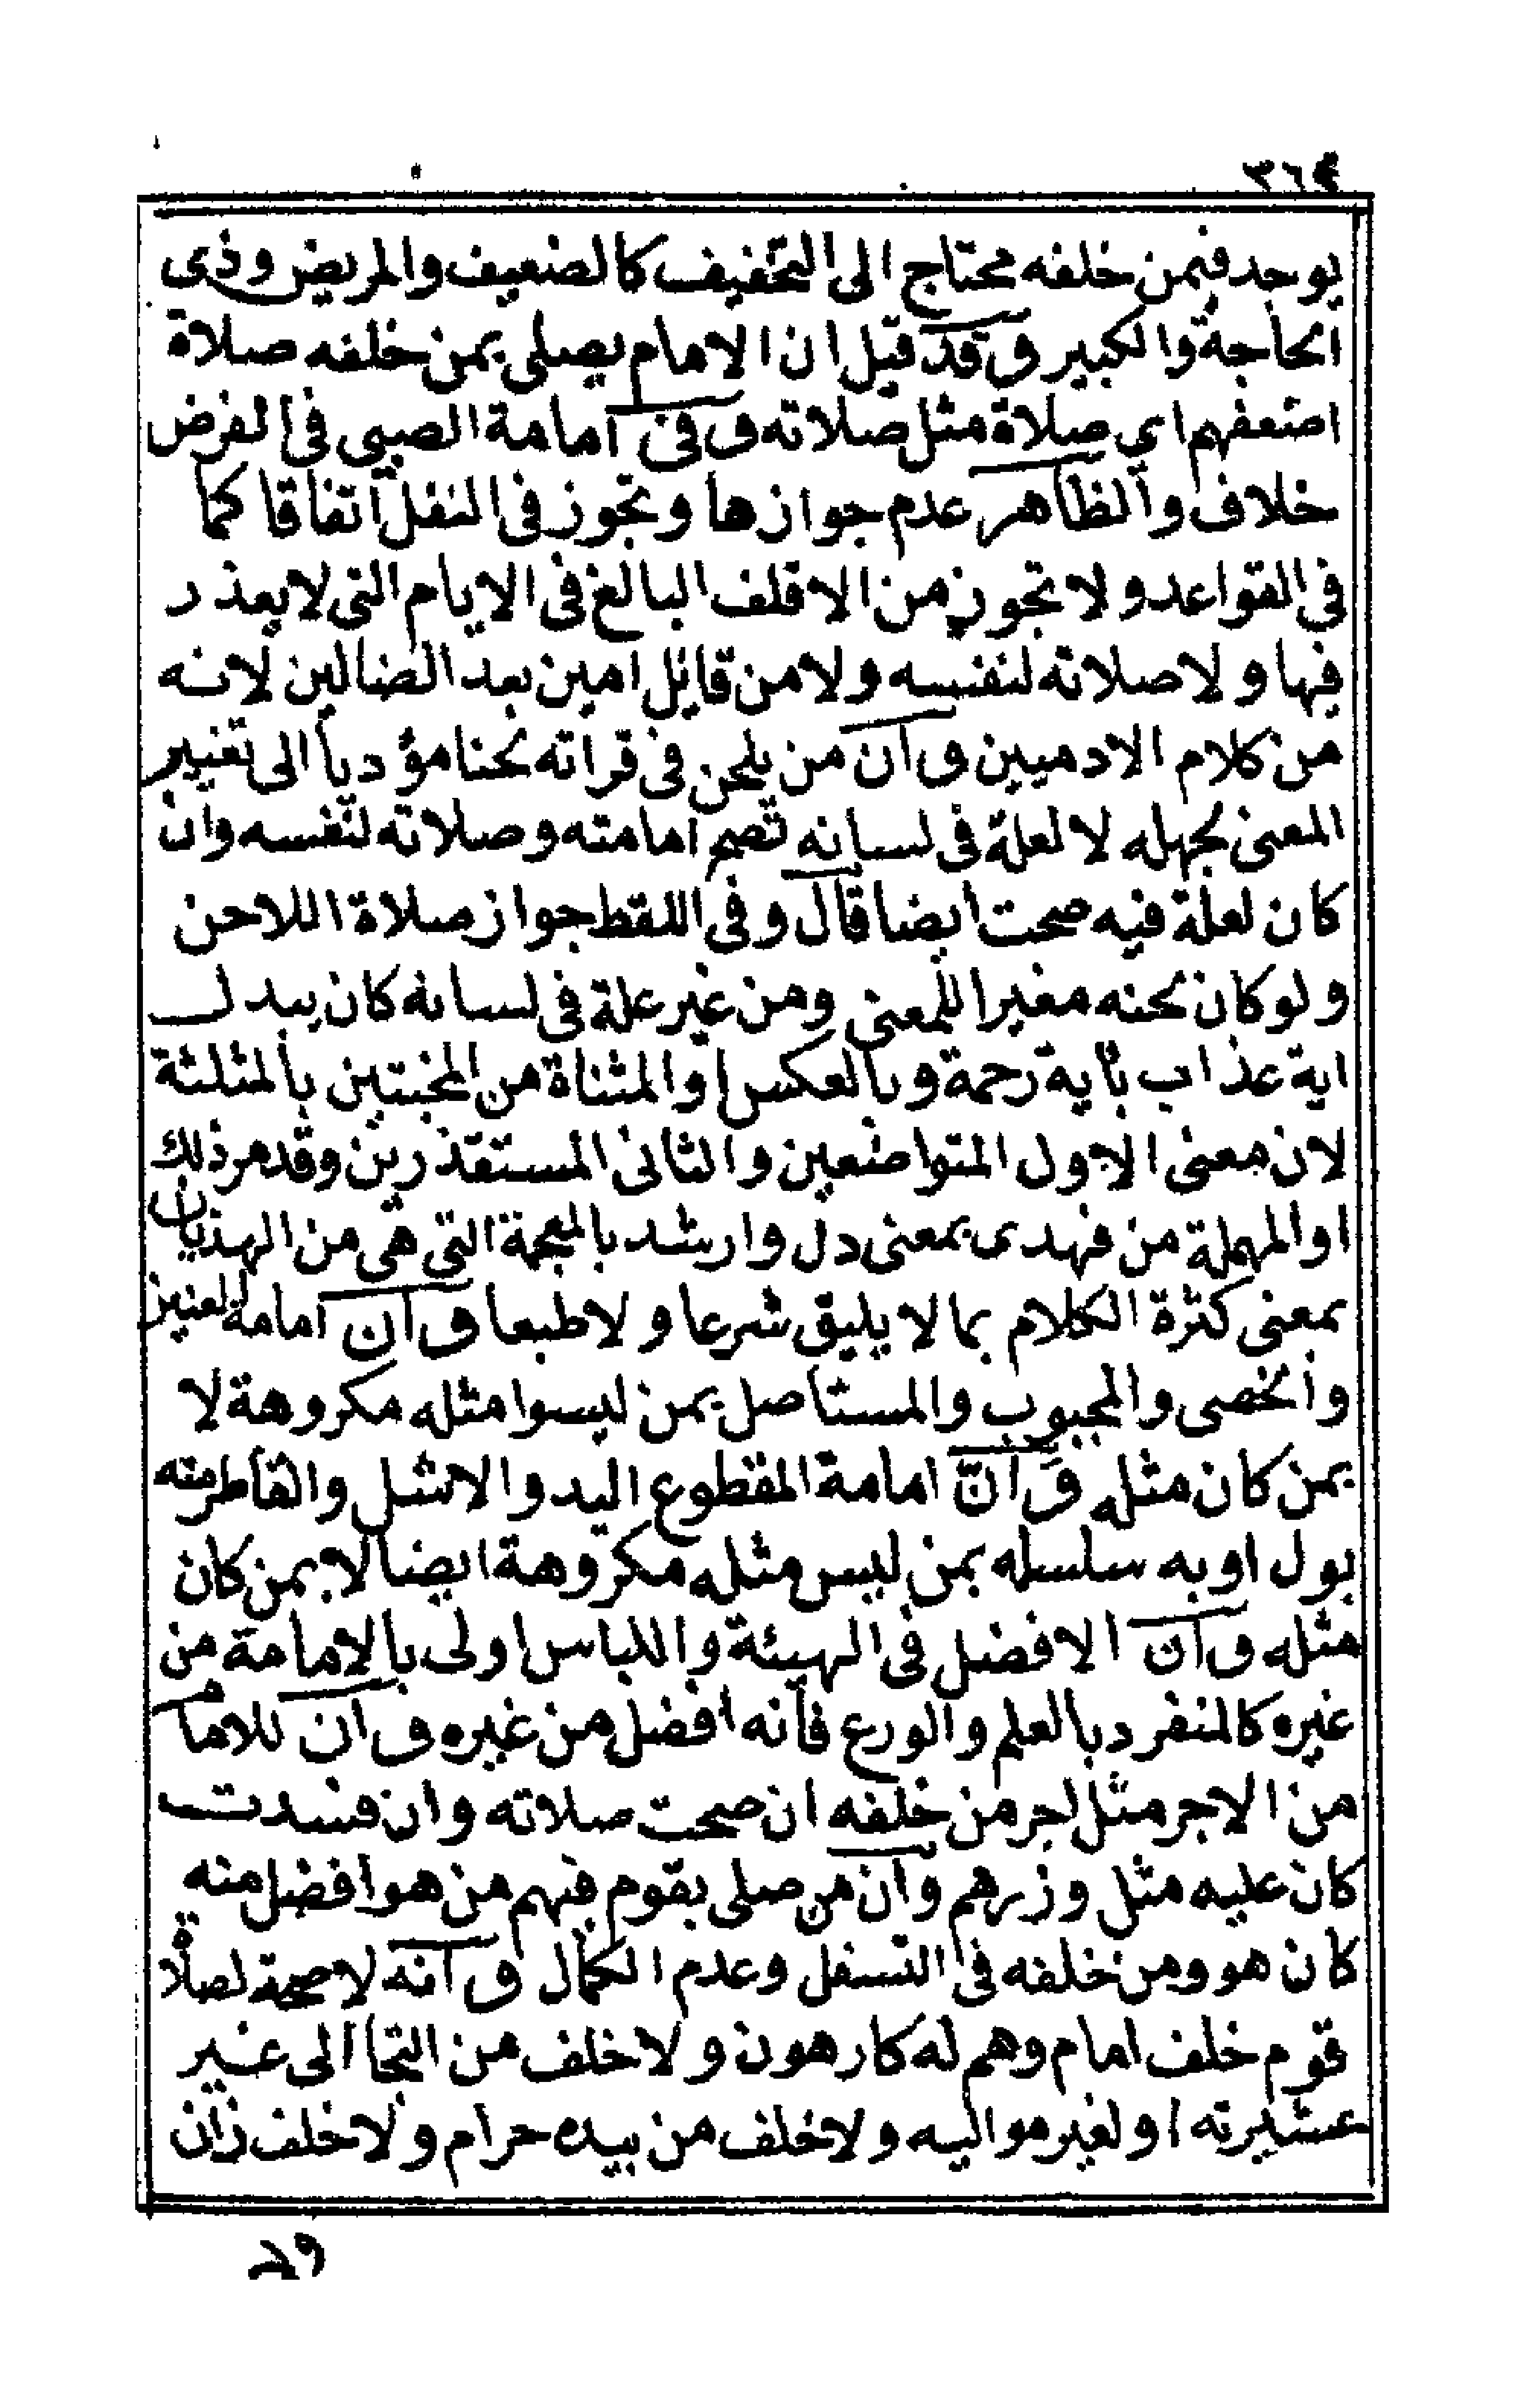 ٣٦٤
يوجد فيمن خلفه محتاج الى التخفيف كالضعيف والمريض وذى
الحاجة والكبير وقد قيل ان الامام يصلى بمن خلفه صلاة
اضعفهم اي صلاة مثل صلاته وفى امامة الصبى فى الفرض
خلاف والظاهر عدم جوازها وتجوز فى النفل اتفاقا كما
فى القواعد ولا تجوز من الاقلف البالغ فى الايام التى لا يعذر
فيها ولا صلاته لنفسه ولا من قائل امين بعد الضالين لانه
من كلام الادميين وان من يلحن فى قراته لحنا مؤديا الى تغيير
المعنى لجهله لا لعلة فى لسانه تصح امامته وصلاته لنفسه وان
كان لعلة فيه صحت ايضا قال وفى اللقط جواز صلاة اللاحن
ولو كان لحنه مغيرا للمعنى ومن غير علة فى لسانه كان يبدل
اية عذاب باية رحمة وبالعكس او المثناة من المخبتين بالمثلثة
لان معنى الاول المتواضعين والثانى المستقذرين وقد مر ذلك
او المهملة من فهدى بمعنى دل وارشد بالمعجمة التى هى من الهذيان
بمعنى كثرة الكلام بما لا يليق شرعا ولا طبعا وان امامة العنين
والخصى والمجبوب والمستاصل بمن ليسوا مثله مكروهة لا
بمن كان مثله وانّ امامة المقطوع اليد والاشل والقاطر منه
بول او به سلسله بمن ليس مثله مكروهة ايضا لا بمن كان
مثله وان الافضل فى الهيئة واللباس اولى بالامامة من
غيره كالمنفرد بالعلم والورع فانه افضل من غيره وان للامام
من الاجر مثل اجر من خلفه ان صحت صلاته وان فسدت
كان عليه مثل وزرهم وان من صلى بقوم فيهم من هو افضل منه
كان هو ومن خلفه فى التسفل وعدم الكمال وانه لا صحة لصلاة
قوم خلف امام وهم له كارهون ولا خلف من التجا الى غير
عشيرته او لغير مواليه ولا خلف من بيده حرام ولا خلف زان